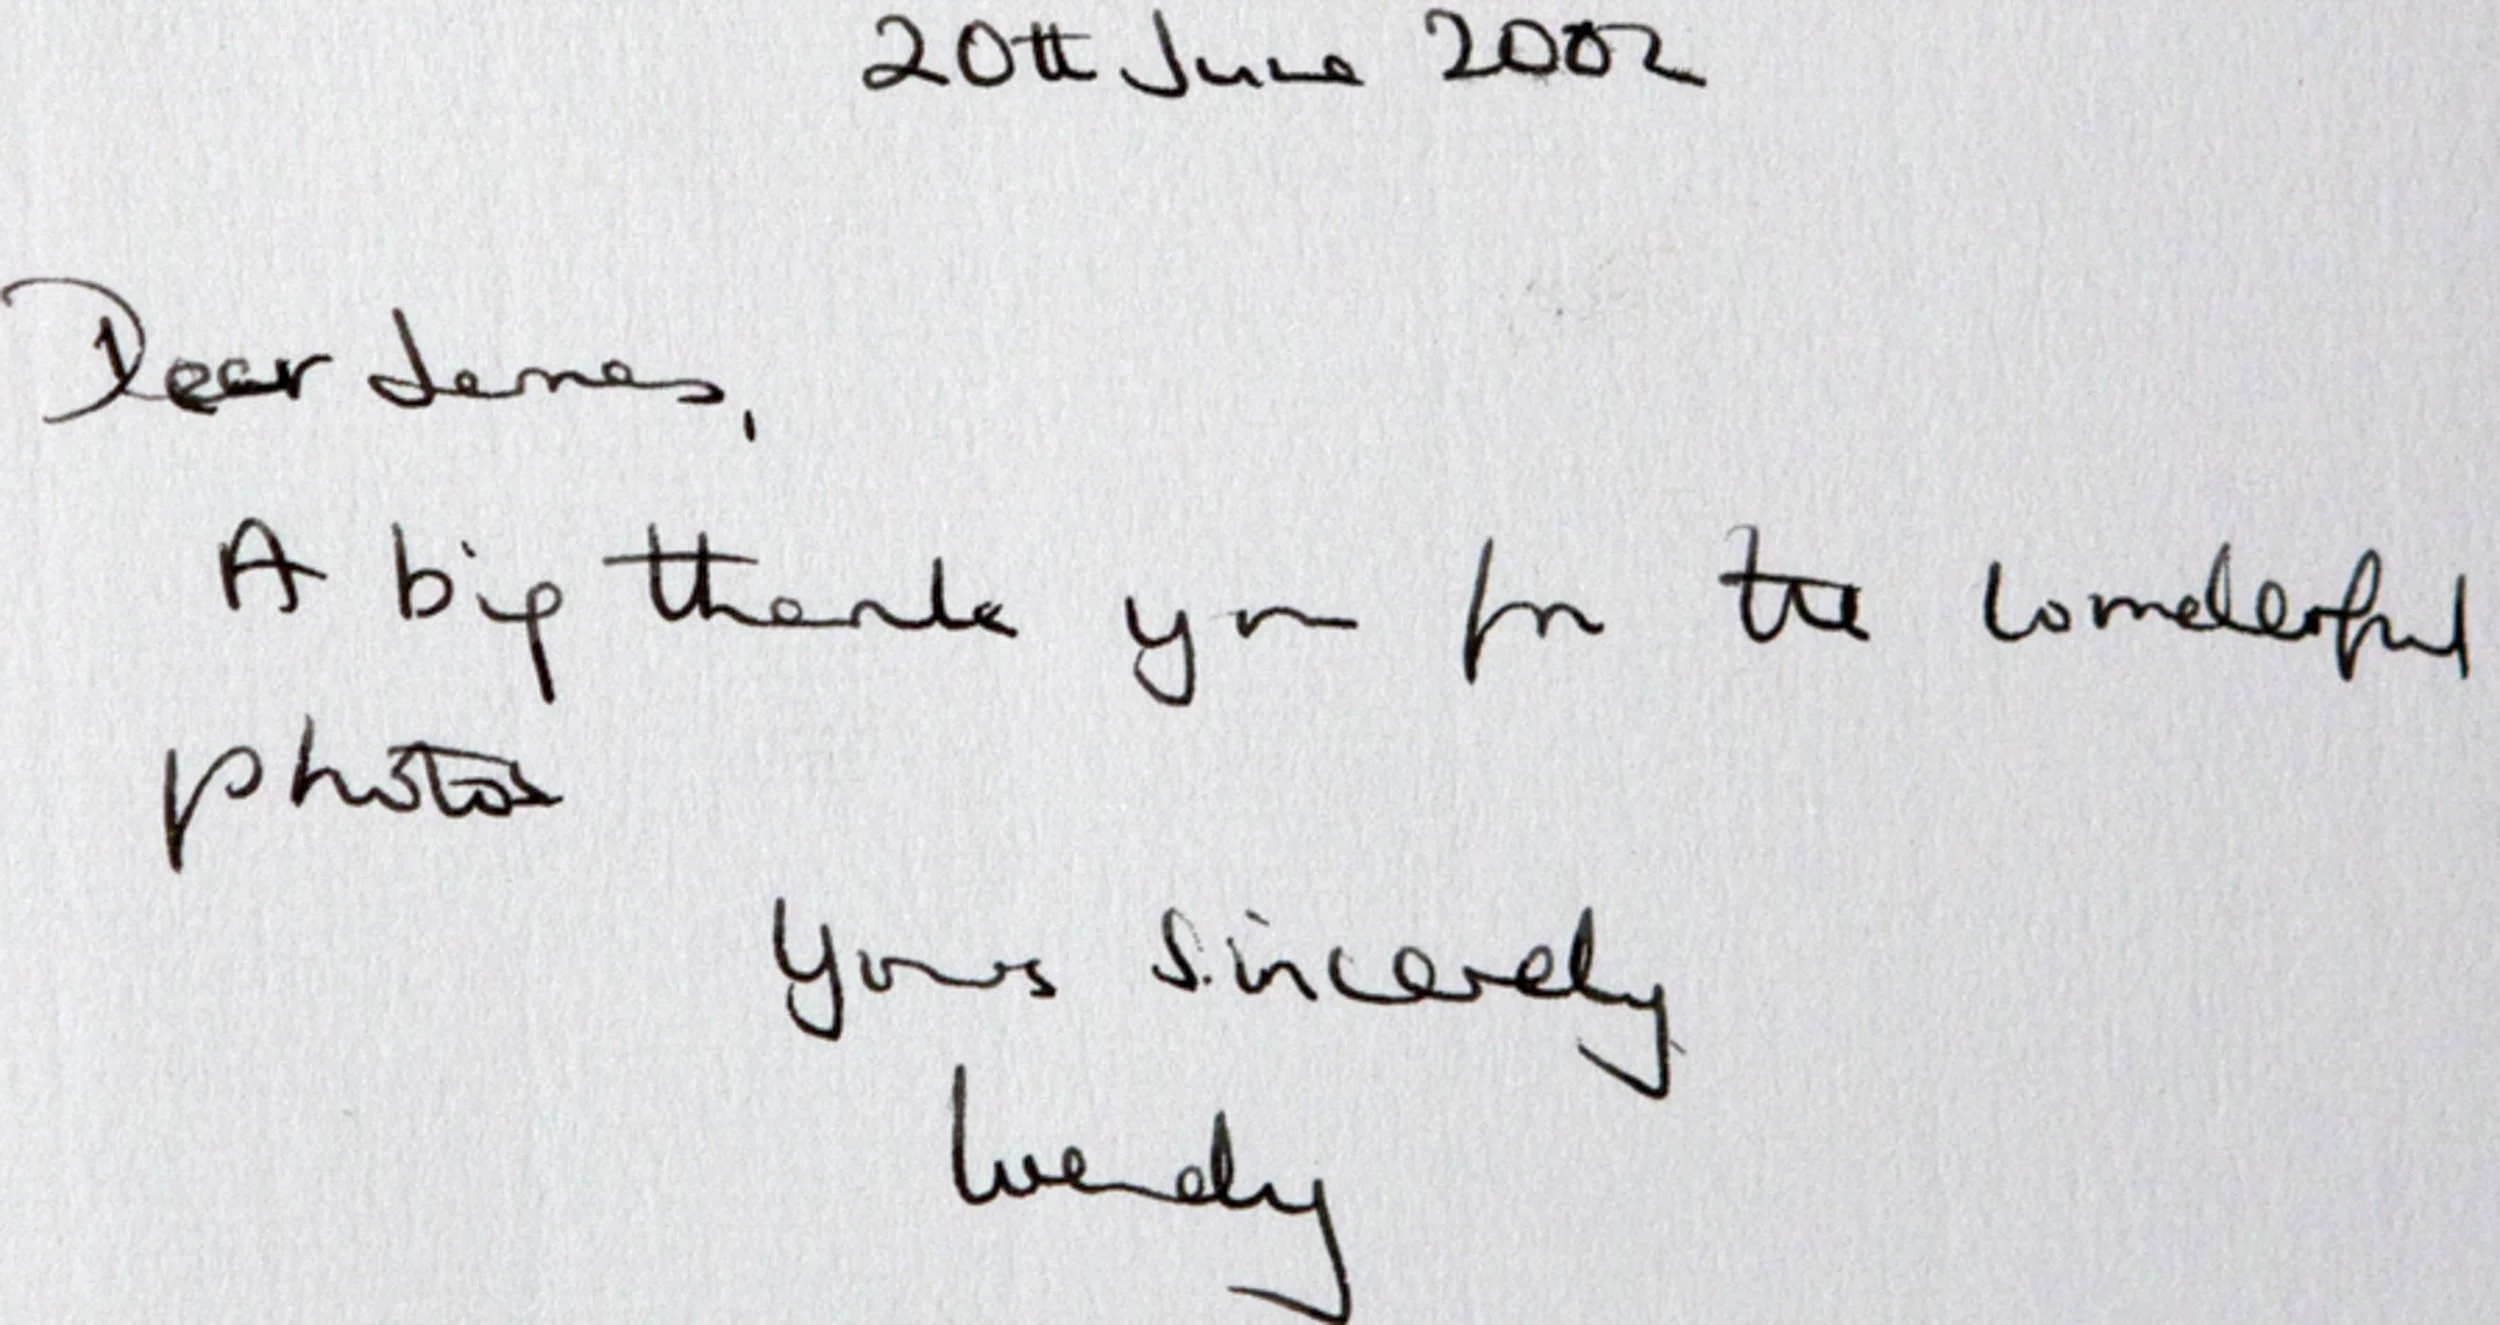 20th June 2002
Dear James,
A big thank you for the wonderful
photos
Yours Sincerely
Wendy